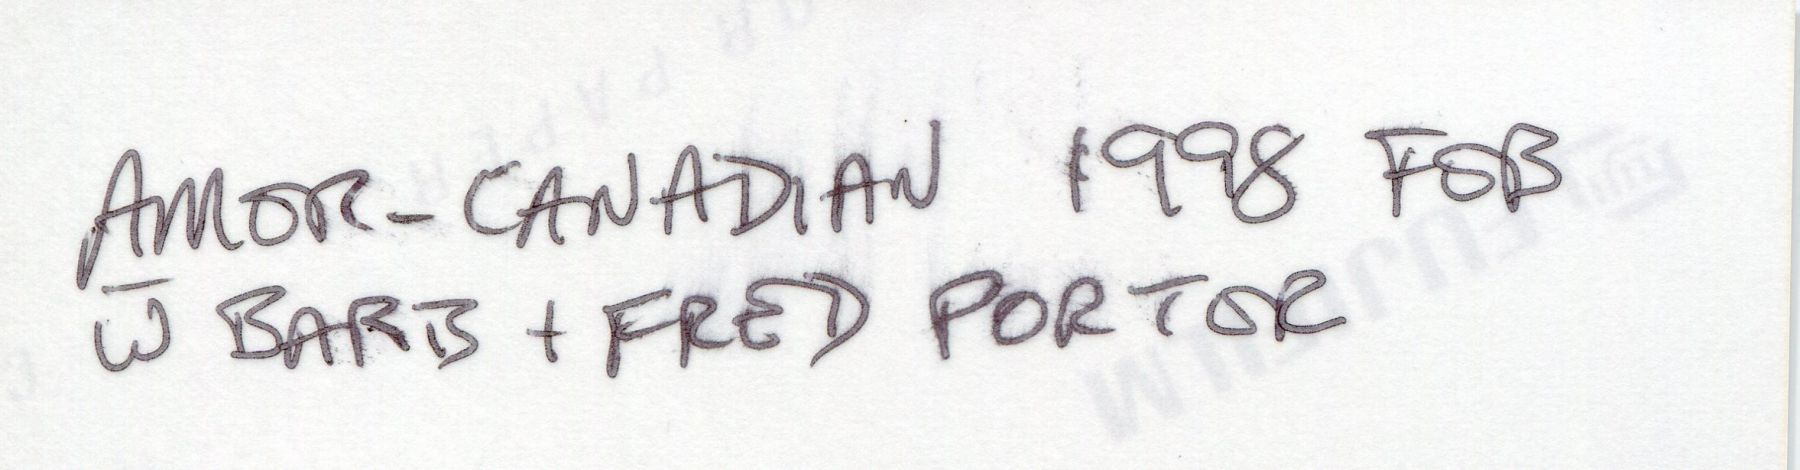 AMER-CANADIAN 1998 FEB
w̄ BARB + FRED PORTER